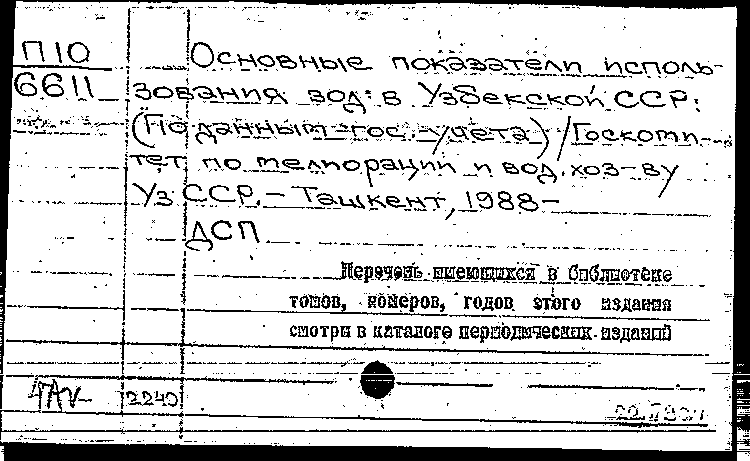 П10
6611
Основные показатели исполь-
зования вод в Узбекской ССР:
(По данным гос. учета) / Госкоми-
тет по мелиорации и вод. хоз-ву
Уз ССР. – Ташкент, 1988 –
ДСП
Перечень имеющихся в библиотеке
томов, номеров, годов этого издания
смотри в каталоге периодических изданий
2240